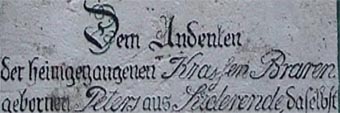 Dem Andenken
der heimgegangenen Krassen Braren
gebornen Peters aus Süderende, daselbst